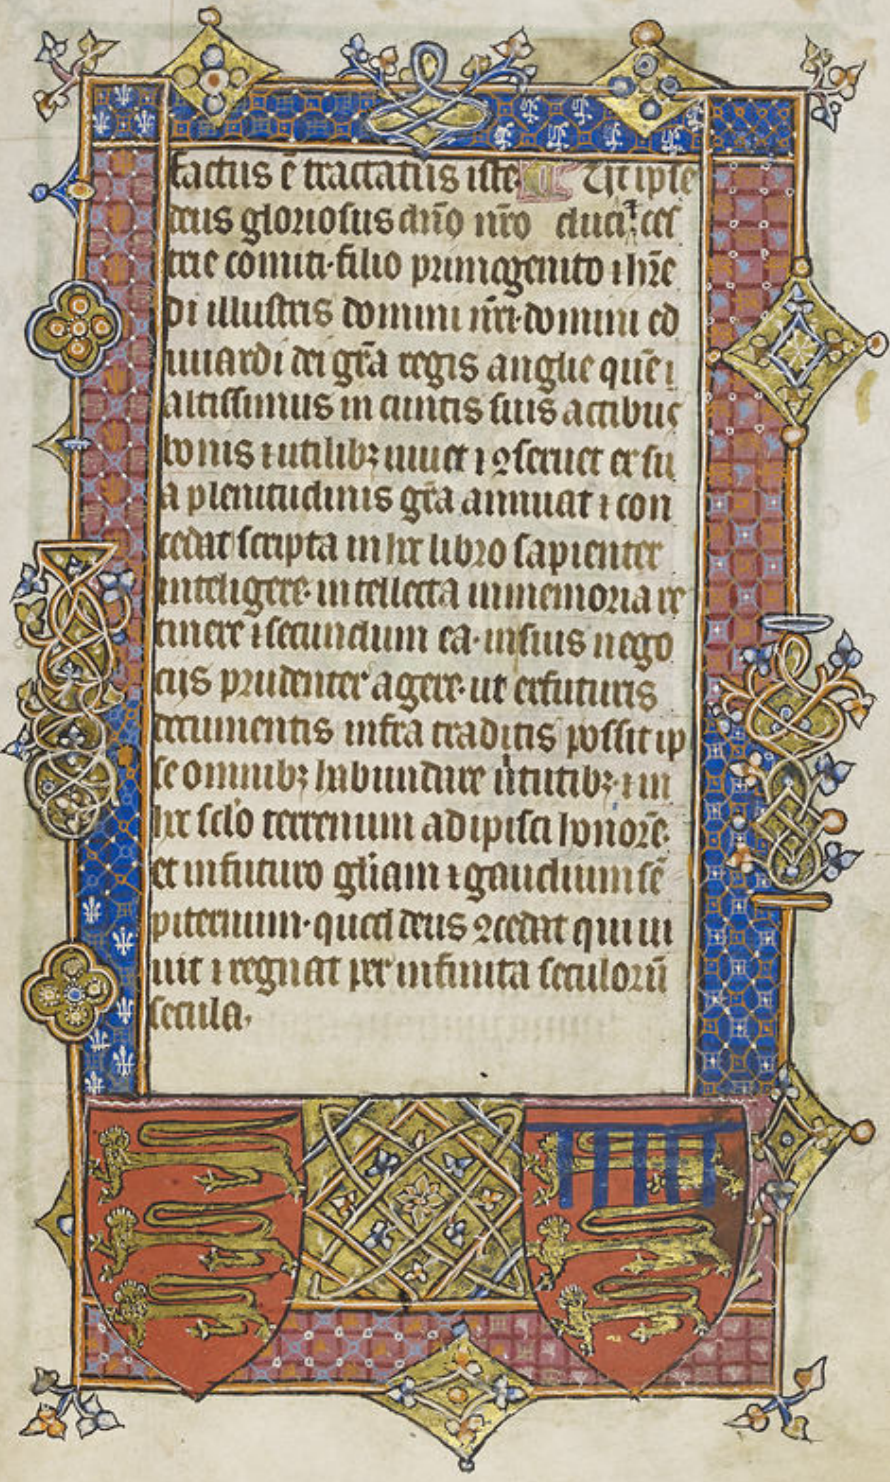 factus ē tractatus iste Ut ipse
deus gloriosus dño nr̄o duci ⁊ ces
trie comiti·filio primogenito ⁊ hr̄e
di illustris domini nr̄i·domini ed
uuardi dei gr̄a regis anglie quē ⁊
altissimus in cuntis suis actibus
bonis ⁊ utilibꝫ iuuet ⁊ ꝯseruet ex su
a plenitudinis gr̄a annuat ⁊ con
cedat scripta in hr̄ libro sapienter
inteligere·intellecta in memoria re
tinere ⁊ secundum ea·in suis nego
ciis prudenter agere·ut ex futuris
documentis infra traditis possit ip
se omnibꝫ habundare ũtutibꝫ·⁊ in
hr̄ sclo terrenum adipisci honorē·
et in futuro gl̄iam ⁊ gaudium sē
piternum·quod deus ꝯcedat qui ui
uit ⁊ regnat per infinita seculorū
secula·